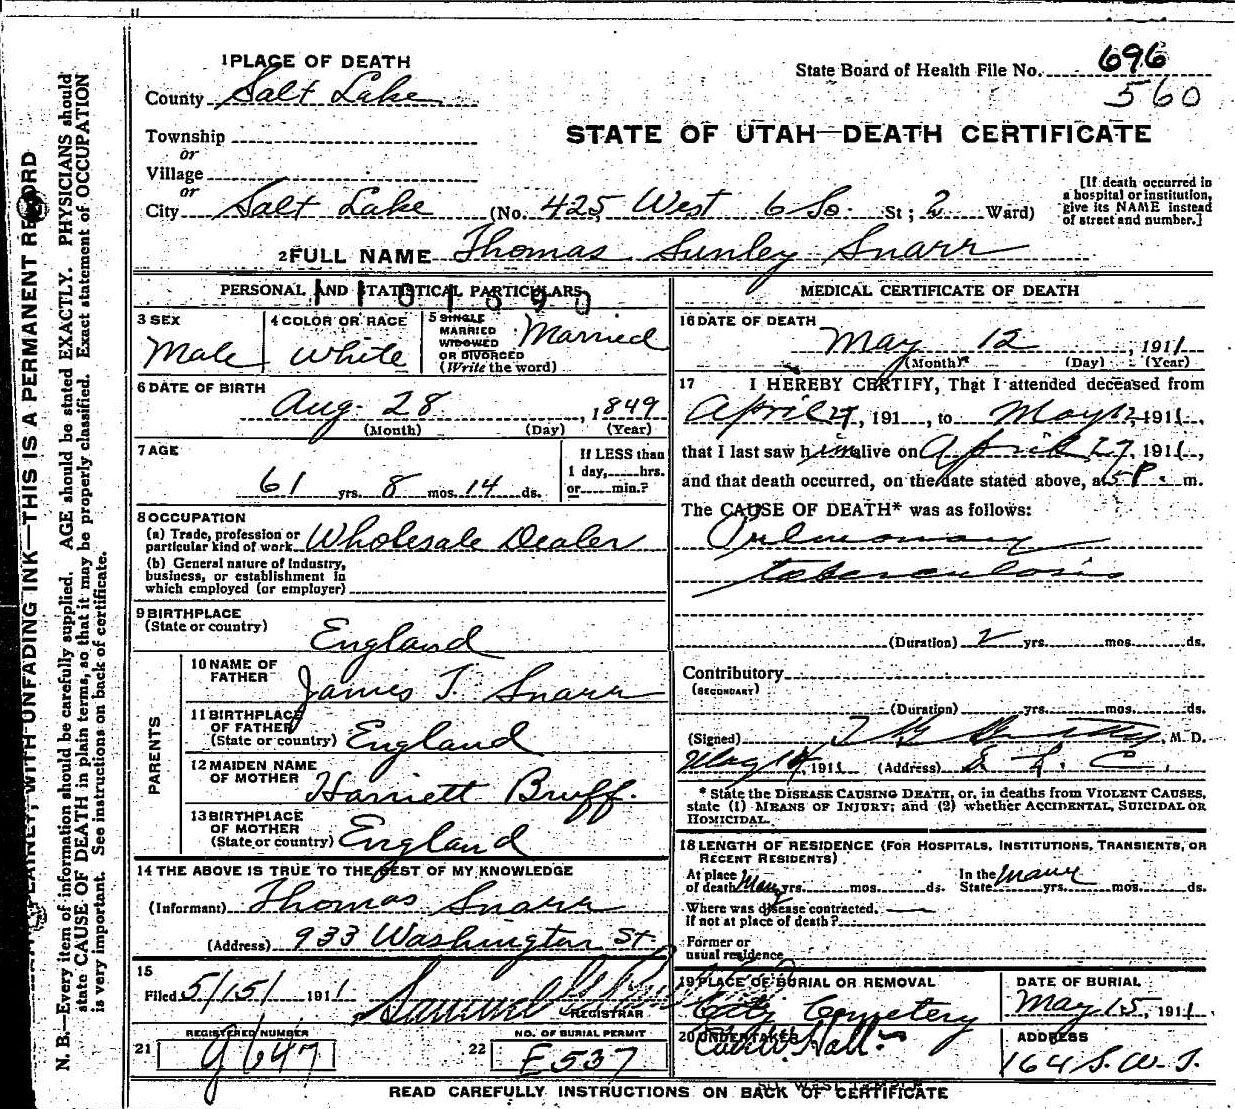 1 PLACE OF DEATH
State Board of Health File No. 696
560
County Salt Lake
STATE OF UTAH—DEATH CERTIFICATE
Township
or
Village
or
City Salt Lake (No. 425 West 6 So. St; 2 Ward)
[If death occurred in
a hospital or institution,
give its NAME instead
of street and number.]
2 FULL NAME Thomas Sunley Snarr
PERSONAL AND STATISTICAL PARTICULARS
3 SEX
Male
4 COLOR OR RACE
White
5 SINGLE
MARRIED
WIDOWED
OR DIVORCED
(Write the word)
Married
6 DATE OF BIRTH
Aug. 28, 1849
(Month) (Day) (Year)
7 AGE
61 yrs. 8 mos. 14 ds.
If LESS than
1 day, hrs.
or min.?
8 OCCUPATION
(a) Trade, profession or
particular kind of work Wholesale Dealer
(b) General nature of Industry,
business, or establishment in
which employed (or employer)
9 BIRTHPLACE
(State or country)
England
PARENTS
10 NAME OF
FATHER James T. Snarr
11 BIRTHPLACE
OF FATHER
(State or country) England
12 MAIDEN NAME
OF MOTHER Harriett Bruff.
13 BIRTHPLACE
OF MOTHER
(State or country) England
14 THE ABOVE IS TRUE TO THE BEST OF MY KNOWLEDGE
(Informant) Thomas Snarr
(Address) 933 Washington St.
15
Filed 5/15/ 1911 Samuel
REGISTRAR
REGISTERED NUMBER
21 g647
NO. OF BURIAL PERMIT
22 E537
MEDICAL CERTIFICATE OF DEATH
16 DATE OF DEATH
May 12, 1911
(Month) (Day) (Year)
17 I HEREBY CERTIFY, That I attended deceased from
April, 191, to May 12, 1911,
that I last saw him alive on April 27, 1911,
and that death occurred, on the date stated above, at 5 P. m.
The CAUSE OF DEATH* was as follows:
Pulmonary
tuberculosis
(Duration) 2 yrs. mos. ds.
Contributory
(SECONDARY)
(Duration) yrs. mos. ds.
(Signed) M. D.
May 14, 1911 (Address) S. L. C.
* State the DISEASE CAUSING DEATH, or, in deaths from VIOLENT CAUSES,
state (1) MEANS OF INJURY; and (2) whether ACCIDENTAL, SUICIDAL OR
HOMICIDAL.
18 LENGTH OF RESIDENCE (FOR HOSPITALS, INSTITUTIONS, TRANSIENTS, OR
RECENT RESIDENTS)
At place
of death Many yrs. mos. ds.
In the
State many yrs. mos. ds.
Where was disease contracted,
If not at place of death?
Former or
usual residence
19 PLACE OF BURIAL OR REMOVAL
City Cemetery
DATE OF BURIAL
May 15, 1911
20 UNDERTAKER
Hall
ADDRESS
164 S. W. T.
READ CAREFULLY INSTRUCTIONS ON BACK OF CERTIFICATE
WITH UNFADING INK—THIS IS A PERMANENT RECORD
N. B.—Every item of information should be carefully supplied. AGE should be stated EXACTLY. PHYSICIANS should
state CAUSE OF DEATH in plain terms, so that it may be properly classified. Exact statement of OCCUPATION
is very important. See instructions on back of certificate.